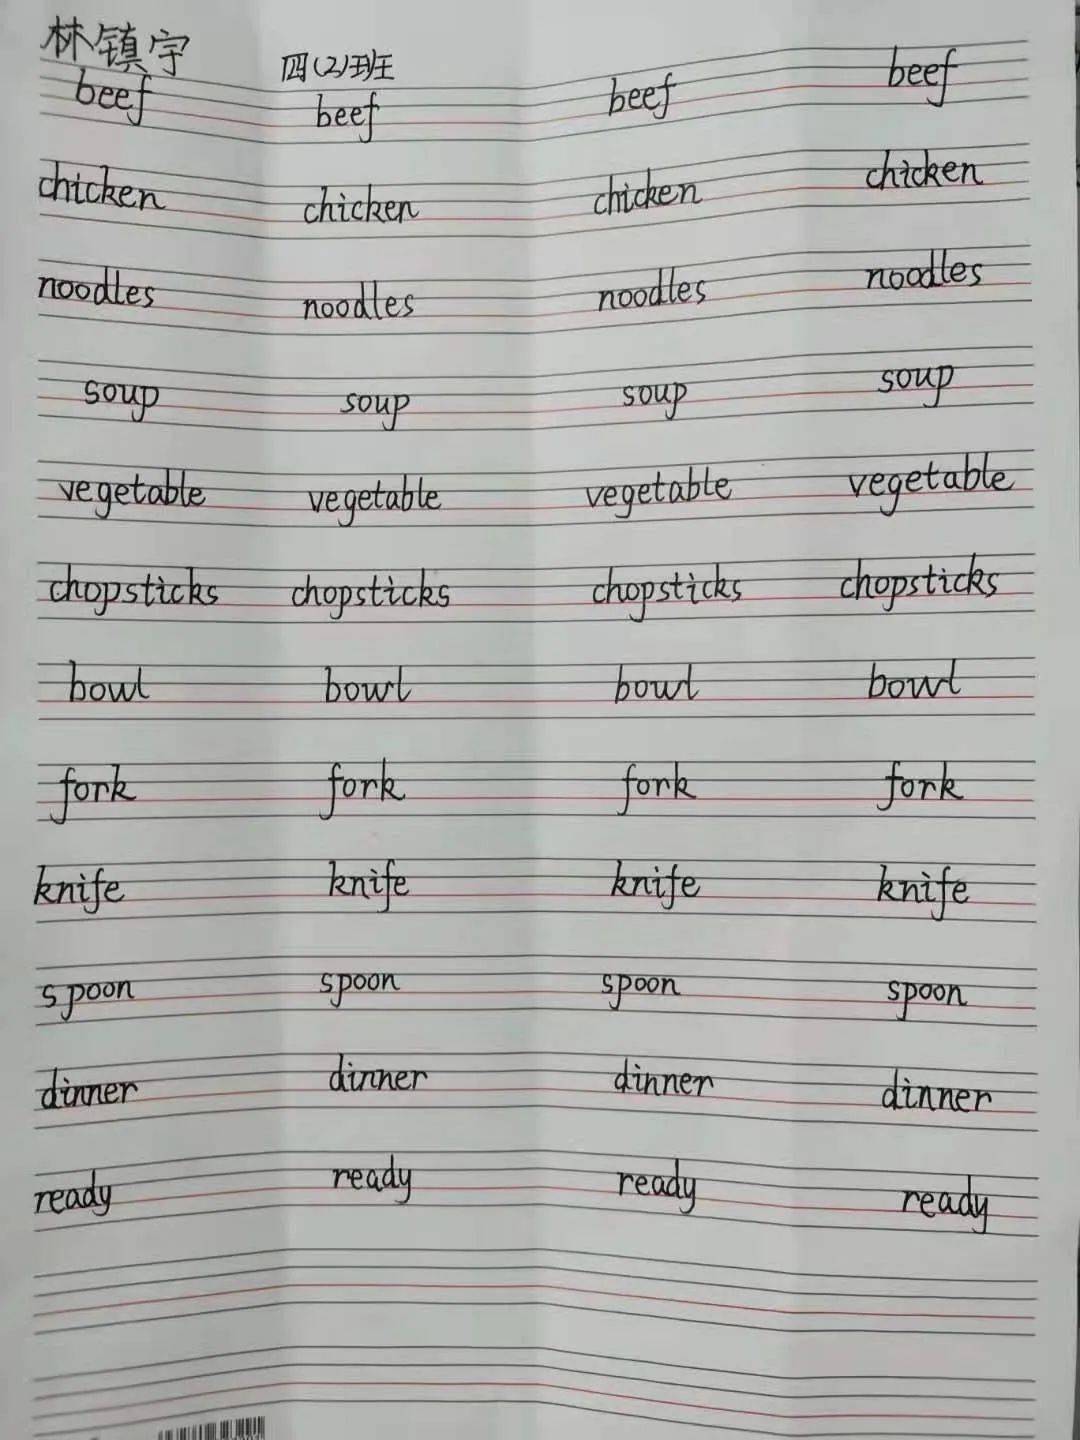 林镇宇 四(2)班
beef beef beef beef
chicken chicken chicken chicken
noodles noodles noodles noodles
soup soup soup soup
vegetable vegetable vegetable vegetable
chopsticks chopsticks chopsticks chopsticks
bowl bowl bowl bowl
fork fork fork fork
knife knife knife knife
spoon spoon spoon spoon
dinner dinner dinner dinner
ready ready ready ready